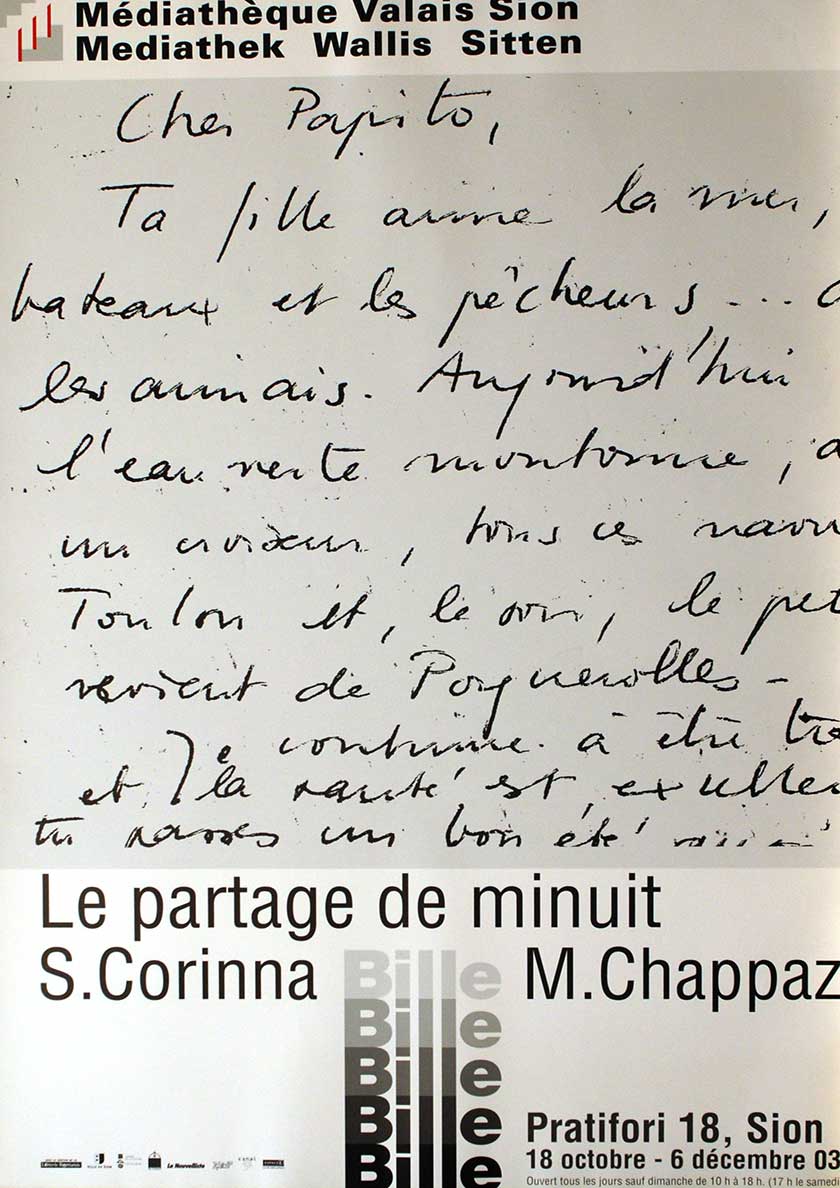 Médiathèque Valais Sion
Mediathek Wallis Sitten
Cher Papito,
Ta fille aime la mer,
bateaux et les pêcheurs ...
les amirais. Aujourd'hui
l'eau verte moutonne,
un croiseur, tous ces navir
Toulon et, le soir, le pet
revient de Porquerolles -
Je continue à être trè
et la santé est excellen
tu passes un bon été
Le partage de minuit
S.Corinna Bille M.Chappaz
Bille
Bille
Bille
Bille
Pratifori 18, Sion
18 octobre - 6 décembre 03
Ouvert tous les jours sauf dimanche de 10 h à 18 h. (17 h le samedi
Le Nouvelliste